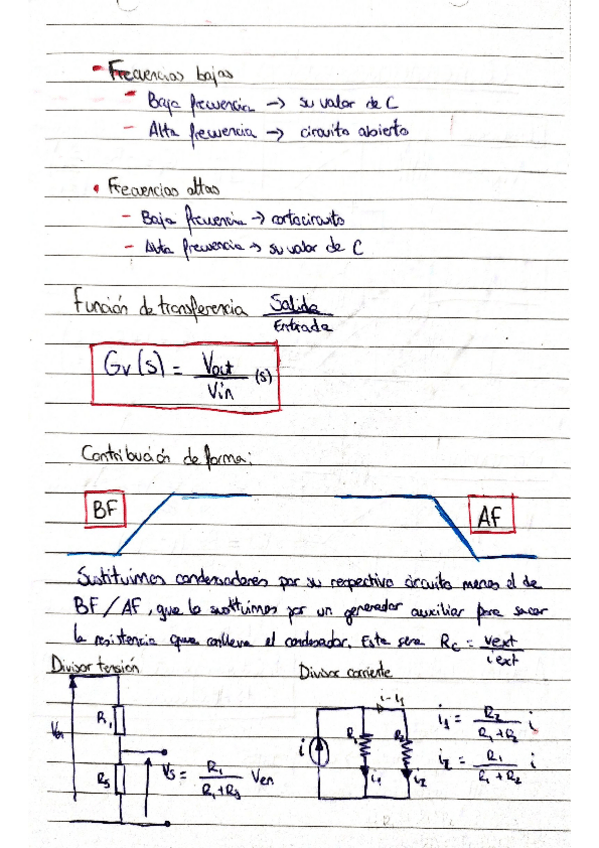 - Frecuencias bajas
- Baja frecuencia → su valor de C
- Alta frecuencia → circuito abierto
• Frecuencias altas
- Baja frecuencia → cortocircuito
- Alta frecuencia → su valor de C
Función de transferencia Salida / Entrada
Gv(s) = Vout / Vin (s)
Contribución de forma:
BF
AF
Sustituimos condensadores por su respectivo circuito menos el de
BF/AF, que lo sustituimos por un generador auxiliar para sacar
la resistencia que conlleva el condensador. Esta sera Rc = vext / iext
Divisor tensión
Divisor corriente
Ven
R1
Rs
Vs = R1 / R1+Rs Ven
i
i-i1
R1
R2
i1
i2
i1 = R2 / R1+R2 i
i2 = R1 / R1+R2 i